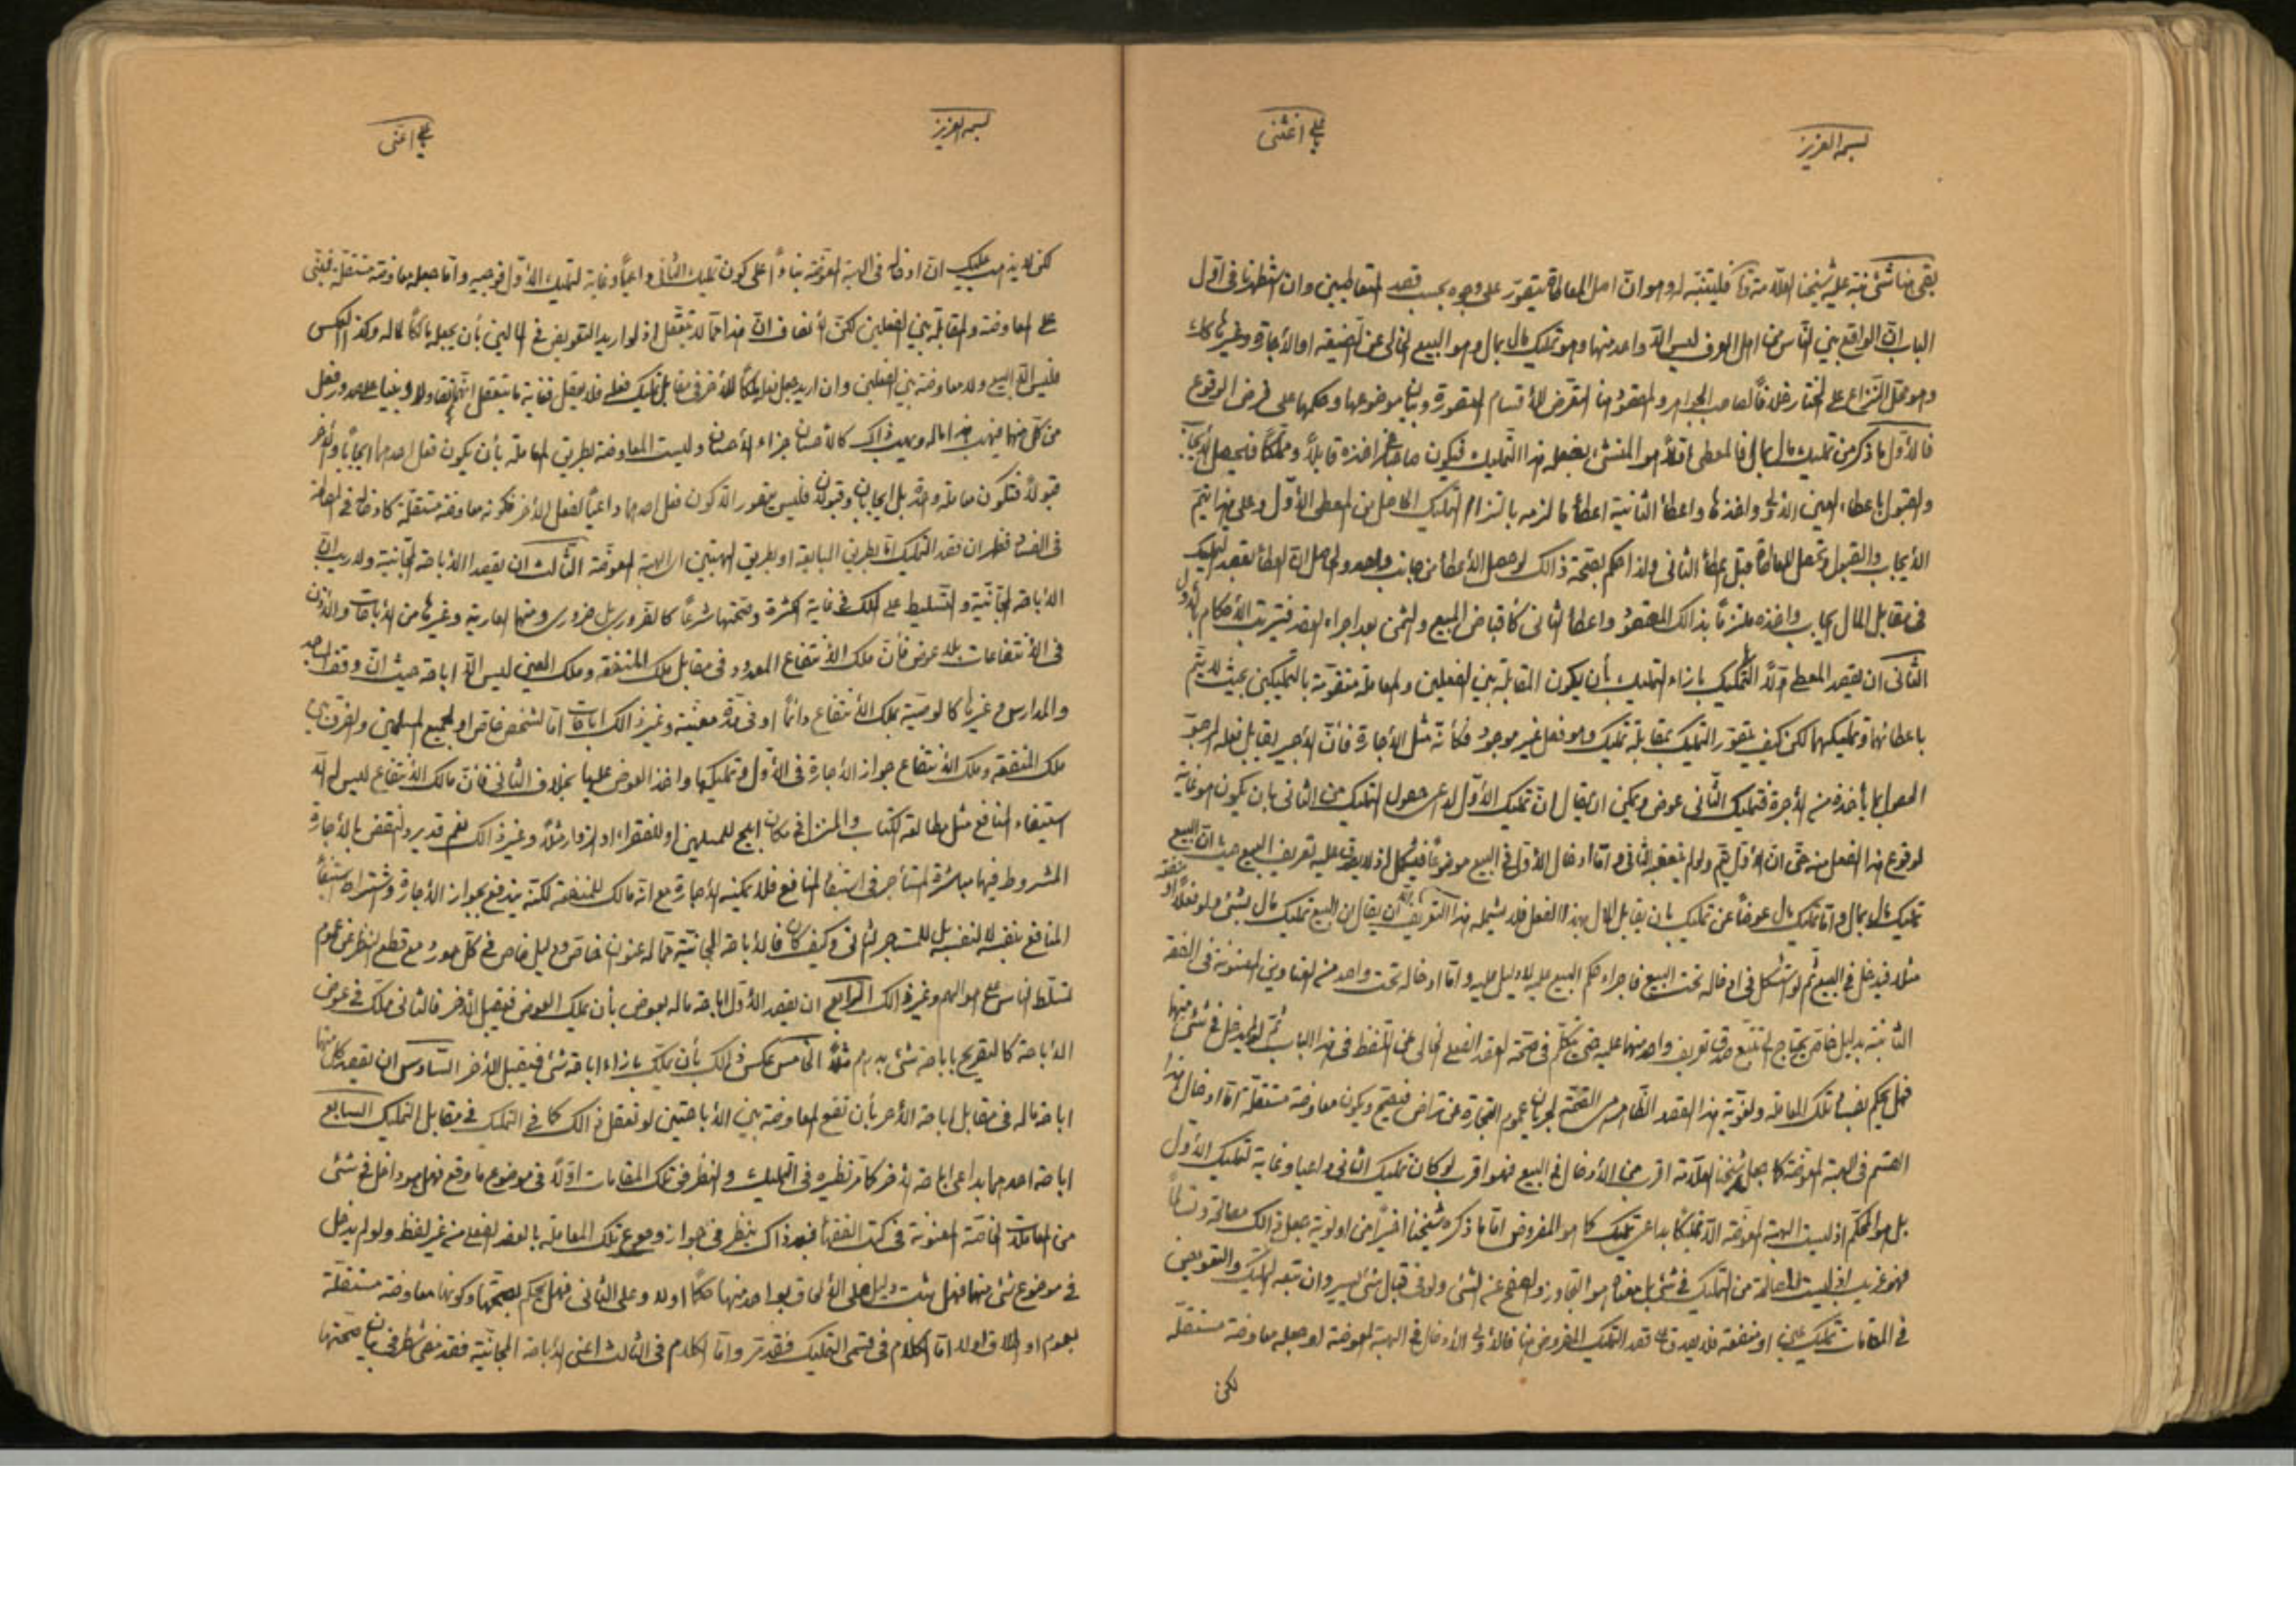 بسمه العزيز
يا علي اغثني
بقى هنا شئ نبّه عليه شيخنا العلّامة فليتنبّه له وهو انّ اصل المعاطاة يتصوّر على وجوه بحسب قصد المتعاطيين وان استظهرنا في اوّل
الباب انّ الواقع بين النّاس من اهل العرف ليس الّا واحد منها وهو تمليك مال بمال وهو البيع الخالى عن الصّيغة او الاجارة وغيرها كذلك
وهو محلّ النّزاع على المختار خلافًا لصاحب الجواهر والمقصود هنا التعرّض للأقسام المتصورة وبيان موضوعها وحكمها على فرض الوقوع
فالأوّل ما ذكر من تمليك مال بمال فالمعطى اوّلًا هو المنشئ بفعله هذا التّمليك فيكون صاحبه باخذه قابلًا ومتملّكًا فيحصل الأيجاب
والقبول باعطاء العين الاولى واخذها واعطاء الثانية اعطاء ما لزمه بالتزام التّمليك الحاصل من المعطى الأوّل وعلى هذا يتمّ
الأيجاب والقبول وتحصل المعاطاة قبل اعطاء الثانى ولذا حكم بصحّة ذالك لو حصل الأعطاء من جانب واحد والحاصل انّ العطاء بقصد التمليك
فى مقابل المال ايجاب واخذه ملتزمًا بذالك المقصود واعطاء الثانى كأقباض المبيع والثمن بعد اجراء العقد فيترتب الأحكام بالأول
الثانى ان يقصد المعطى اوّلًا التمليك بازاء التمليك بأن يكون المقابلة بين الفعلين والمعاملة متقوّمة بالتمليكين بحيث لا يتمّ
باعطائهما وتمليكهما لكن كيف يتصوّر التمليك بمقابلة تمليك وهو فعل غير موجود فكأنّه مثل الأجارة فأنّ الأجير يقابل فعله المرجوّ
الحصول بما يأخذه من الأجرة فتمليك الثّانى عوض ويمكن ان يقال انّ تمليك الأوّل لداعى حصول التمليك من الثانى بان يكون هو غاية
لوقوع هذا الفعل منه حتّى انّ الأوّل يتمّ ولو لم يتعقبه الثانى وامّا ادخال الأوّل في البيع موضوعًا فيشكل اذ لا يصدق عليه تعريف البيع حيث انّ البيع
تمليك مال بمال وامّا تمليك مال عوضًا عن تمليك بان يقابل المال بهذا الفعل فلا يشمله هذا التعريف الّا ان يقال ان البيع تمليك مال بشئ ولو فعلًا او منفعة
مثلا فيدخل في البيع ثم لو استشكل في ادخاله تحت البيع فاجراء حكم البيع عليه بلا دليل عليه وامّا ادخاله تحت واحد من العناوين المعنونة في الفقه
الثابتة بدليل خاصّ يحتاج الى تتبّع صدق تعريف واحد منها عليه حتى يتكلّم في صحّة العقد الفعلى الخالى عن التلفظ في هذا الباب ثمّ لو لم يدخل في شئ منها
فهل يحكم بفساد تلك المعاملة ولغويّة هذا العقد الظاهر هى الصّحّة لجريان عموم التجارة عن تراض فيصح ويكون معاوضة مستقلّة امّا ادخال هذا
القسم فى الهبة المعوّضة كما جعل شيخنا العلّامة اقرب من الأدخال في البيع فهو اقرب لو كان تمليك الثانى داعيا وغاية لتمليك الأوّل
بل هو المحكّم اذ ليست الهبة المعوّضة الّا تمليكًا بداعى تمليك كما هو المفروض امّا ما ذكره شيخنا اخيرًا من اولويّة جعل ذالك مصالحة وتسالمًا
فهو غريب اذ ليست المصالحة من التمليك في شئ بل معناه هو التجاوز والصفح عن الشئ ولو فى قبال شئ يسير وان تبعه التمليك والتعويض
في المقامات تمليك عين او منفعة فلا يصدق على قصد التمليك المفروض هنا فالأولى الأدخال في الهبة المعوضة او جعله معاوضة مستقلّة
لكن
بسمه العزيز
يا علي اغثني
لكن لا يذهب عليك انّ ادخاله فى الهبة المعوّضة بناءً على كون تمليك الثانى داعيًا وغاية لتمليك الأوّل فوجيه وامّا جعله معاوضة مستقلة فيبتنى
على المعاوضة والمقابلة بين الفعلين لكنّ الأنصاف انّ هذا ممّا لا يتعقّل اذ لو اريد التعويض في المالين بأن يجعله مالكًا لماله وكذا بالعكس
فليس الّا البيع ولا معاوضة بين الفعلين وان اريد جعل فعله ملكًا للأخر في مقابل تمليك فعله فلا يعقل فغاية ما يتعقل انّهما يتقاولان ويبنيان على صدور فعل
من كلّ منهما فيهب هذا ماله ويهب ذاك كالأحسان جزاء الأحسان وليست المعاوضة بطريق المعاملة بأن يكون فعل احدهما ايجابًا والأخر
قبولًا فتكون معاملة واحدة بل ايجابان وقبولان فليس يتصور الّا كون فعل احدهما داعيًا لفعل الأخر فكونه معاوضة مستقلّة كادخاله في المصالحة
فى الفساد فظهر ان قصد التمليك امّا بطريق المبايعة او بطريق الهبتين او الهبة المعوّضة الثّالث ان يقصد الأباحة المجّانية ولا ريب انّ
الأباحة المجّانيّة والتسليط على الملك فى غاية الكثرة وصحّتها شرعًا كالضّرورى بل ضرورى ومنها العارية وغيرها من الأباحات والأذون
فى الأنتفاعات بلا عوض فأنّ ملك الأنتفاع المعدود فى مقابل ملك المنفعة وملك العين ليس الّا اباحة حيث انّ وقف المساجد
والمدارس وغيرها كالوصيّة بملك الأنتفاع دائمًا او فى مدّة معيّنة وغير ذالك اباحات امّا لشخص خاصّ او لجميع المسلمين والفرق بين
ملك المنفعة وملك الأنتفاع جواز الأجارة فى الأوّل وتمليكها واخذ العوض عليها بخلاف الثانى فأنّ مالك الأنتفاع ليس له الّا
استيفاء المنافع مثل مطالعة الكتاب والمنزل في مكان ابيح للمسلمين او للفقراء او الزوار مثلًا وغير ذالك نعم قد يرد النقض بالأجارة
المشروط فيها مباشرة المستأجر فى استيفاء المنافع فلا يمكنه الأجارة مع انّه مالك للمنفعة لكنّه يندفع بجواز الأجارة واشتراط استيفاء
المنافع بنفسه لا لنفسه بل للمستاجر الثانى وكيف كان فالأباحة المجّانيّة ممّا له عنوان خاصّ ودليل خاص في كلّ مورد مع قطع النظر عن عموم
تسلّط النّاس على اموالهم وغير ذالك الرّابع ان يقصد الأوّل اباحة ماله بعوض بأن يملك العوض فيقبل الأخر فالثانى ملّك في عوض
الأباحة كالتّصريح باباحة شئ بدرهم مثلًا الخامس عكس ذالك بأن يملّك بازاء اباحة شئ فيقبل الأخر السّادس ان يقصد كل منهما
اباحة ماله فى مقابل اباحة الأخر بأن تقع المعاوضة بين الأباحتين لو تعقل ذالك كما في التمليك في مقابل التمليك السابع
اباحة احدهما بداعى اباحة الأخر كما مرّ نظيره فى التمليك والنظر فى تلك المقامات اوّلًا فى موضوع ما وقع فهل هو داخل في شئ
من المعاملات الخاصّة المعنونة فى كتب الفقهاء فبعد ذاك ينظر فى جواز وقوع تلك المعاملة بالعقد الفعلى من غير لفظ ولو لم يدخل
في موضوع شئ منها فهل يثبت دليل على الألحاق بواحد منها حكمًا او لا وعلى الثانى فهل يحكم بصحّتها وكونها معاوضة مستقلّة
بعموم او اطلاق او لا امّا الكلام فى قسمى التمليك فقد مرّ وامّا الكلام فى الثالث اعنى الأباحة المجّانيّة فقد مضى شطر فى بيان صحّتها